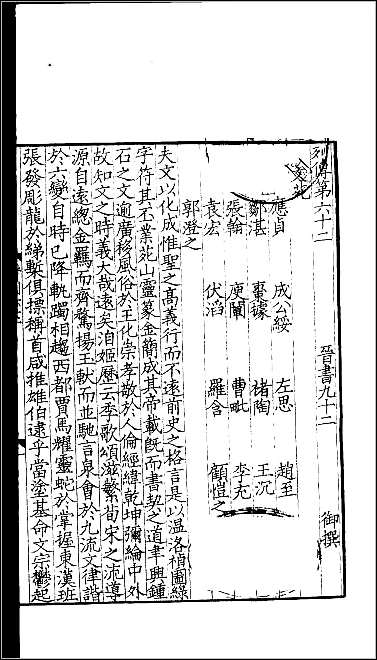 列傳第六十二 晉書九十二
文苑 御撰
應貞 成公綏 左思 趙至
鄒湛 棗據 褚陶 王沉
張翰 庾闡 曹毗 李充
袁宏 伏滔 羅含 顧愷之
郭澄之
夫文以化成惟聖之高義行而不遠前史之格言是以温洛禎圖綠
字符其丕業苑山靈篆金簡成其帝載既而書契之道聿興鍾
石之文逾廣移風俗於王化崇孝敬於人倫經緯乾坤彌綸中外
故知文之時義大哉遠矣洎姬歷云季歌頌滋繁荀宋之流導
源自遠總金羈而齊騖揚玉軑而並馳言泉會於九流文律諧
於六變自時已降軌躅相趨西都賈馬耀靈蛇於掌握東漢班
張發彫龍於綈槧俱摽稱首咸推雄伯逮乎當塗基命文宗鬱起